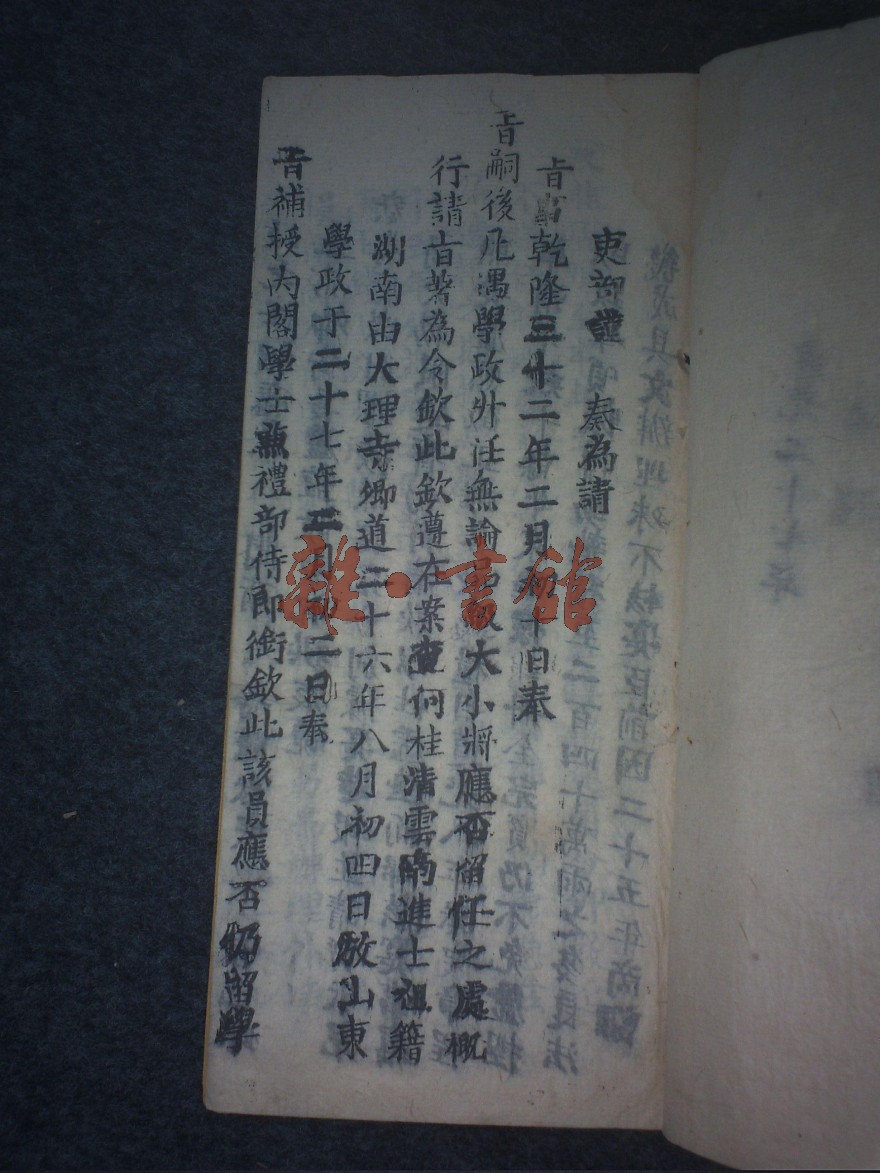 吏部謹　奏為請
旨事乾隆三十二年二月初十日奉
旨嗣後凡遇學政升任無論品級大小將應否留任之處概
行請旨著為令欽此欽遵在案查何桂清雲南進士祖籍
湖南由大理寺卿道二十六年八月初四日放山東
學政于二十七年二月初二日奉
旨補授內閣學士兼禮部侍郎銜欽此該員應否仍留學
雜·書館